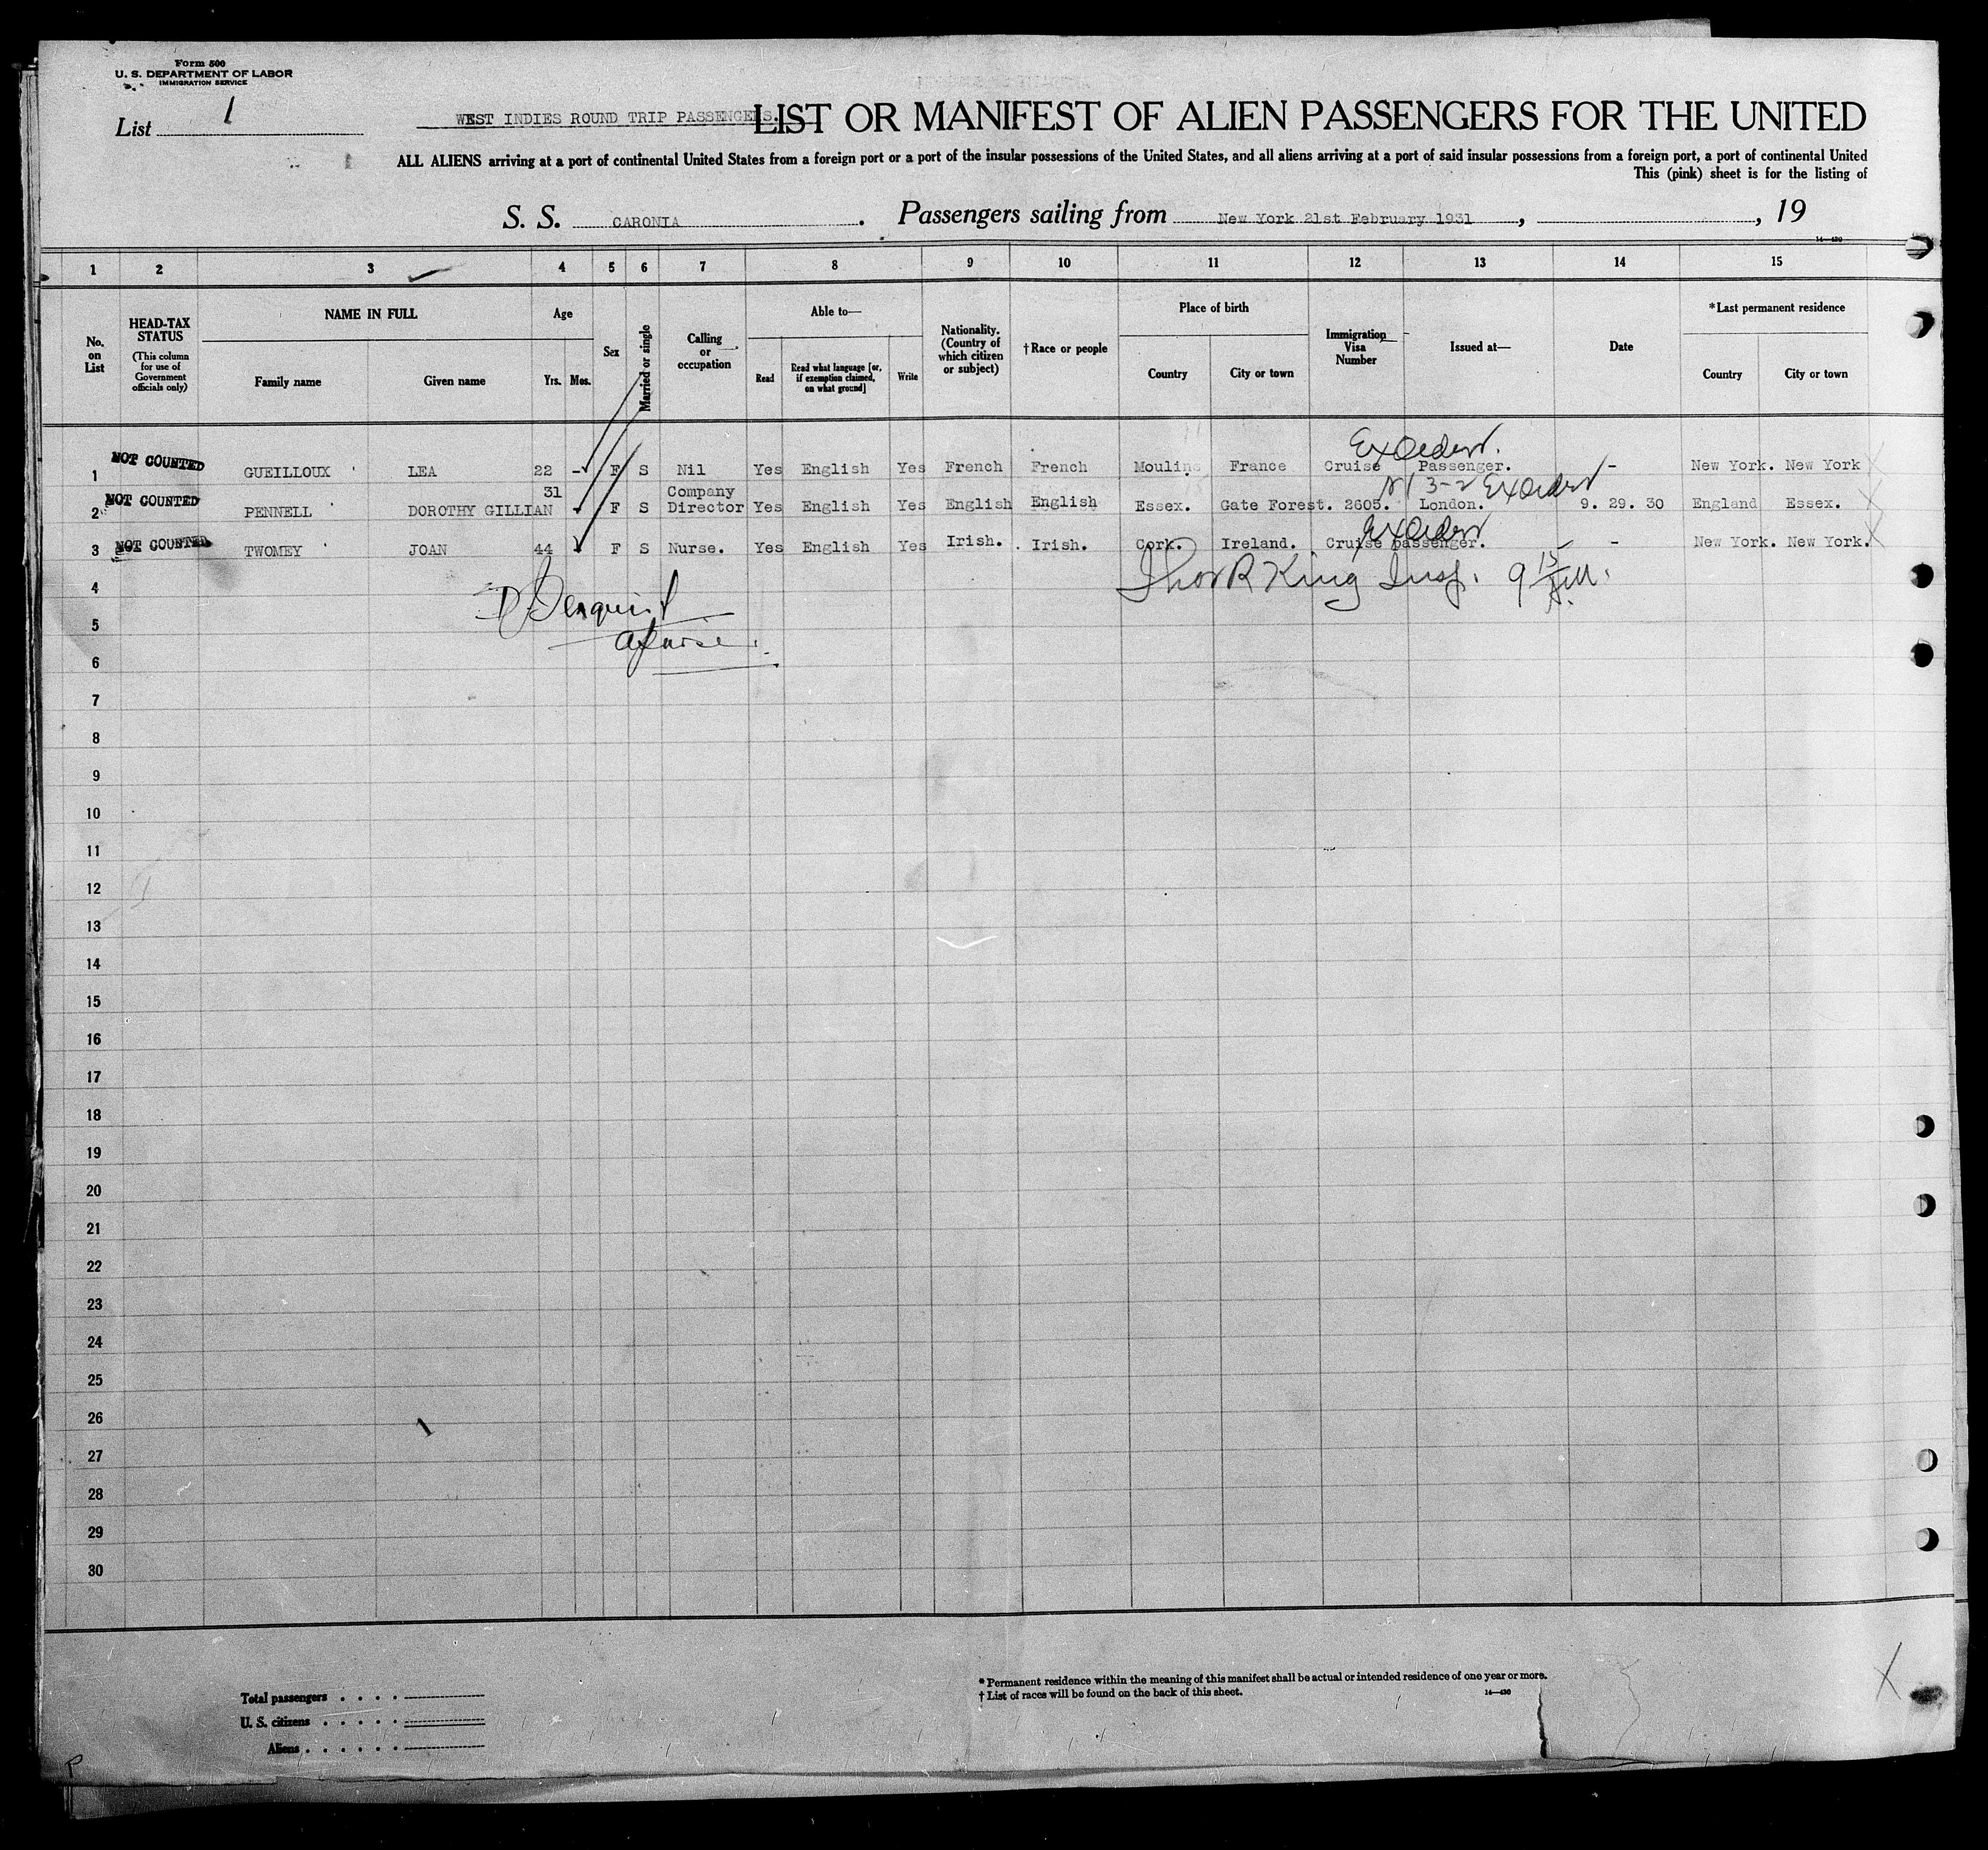 Form 500
U. S. DEPARTMENT OF LABOR
IMMIGRATION SERVICE
List 1
WEST INDIES ROUND TRIP PASSENGERS.
LIST OR MANIFEST OF ALIEN PASSENGERS FOR THE UNITED
ALL ALIENS arriving at a port of continental United States from a foreign port or a port of the insular possessions of the United States, and all aliens arriving at a port of said insular possessions from a foreign port, a port of continental United
This (pink) sheet is for the listing of
S. S. CARONIA. Passengers sailing from New York 21st February 1931, , 19
14—430
1 2 3 4 5 6 7 8 9 10 11 12 13 14 15
No. on List
HEAD-TAX STATUS
(This column for use of Government officials only)
NAME IN FULL
Family name
Given name
Age
Yrs.
Mos.
Sex
Married or single
Calling or occupation
Able to—
Read
Read what language [or, if exemption claimed, on what ground]
Write
Nationality. (Country of which citizen or subject)
†Race or people
Place of birth
Country
City or town
Immigration Visa Number
Issued at—
Date
*Last permanent residence
Country
City or town
1 NOT COUNTED GUEILLOUX LEA 22 - F S Nil Yes English Yes French French Moulins France Cruise Passenger. - New York. New York
2 NOT COUNTED PENNELL DOROTHY GILLIAN 31 F S Company Director Yes English Yes English English Essex. Gate Forest. 2605. London. 9. 29. 30 England Essex.
3-2
3 NOT COUNTED TWOMEY JOAN 44 F S Nurse. Yes English Yes Irish. Irish. Cork. Ireland. Cruise passenger. - - New York. New York.
4
R King Insp. 9
5
6
7
8
9
10
11
12
13
14
15
16
17
18
19
20
21
22
23
24
25
26
27
28
29
30
Total passengers . . . .
U. S. citizens . . . . .
Aliens . . . . . .
* Permanent residence within the meaning of this manifest shall be actual or intended residence of one year or more.
† List of races will be found on the back of this sheet.
14—430